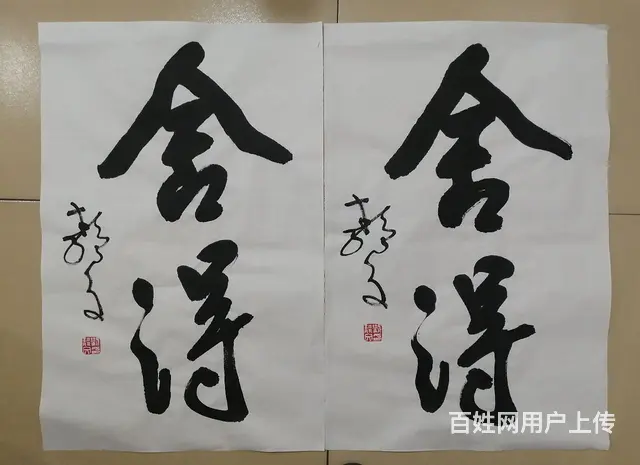 舍得
舍得
百姓网用户上传